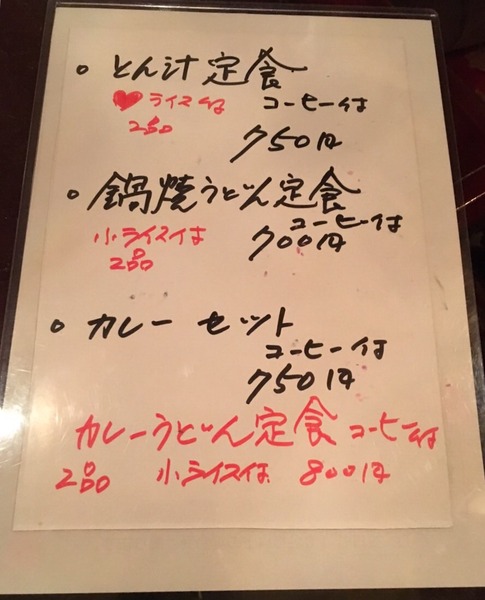 ○ とん汁定食
♥ ライス付 コーヒー付
2品
750円
○ 鍋焼うどん定食
コーヒー付
小ライス付 700円
2品
○ カレーセット
コーヒー付
750円
カレーうどん定食 コーヒー付
2品 小ライス付 800円